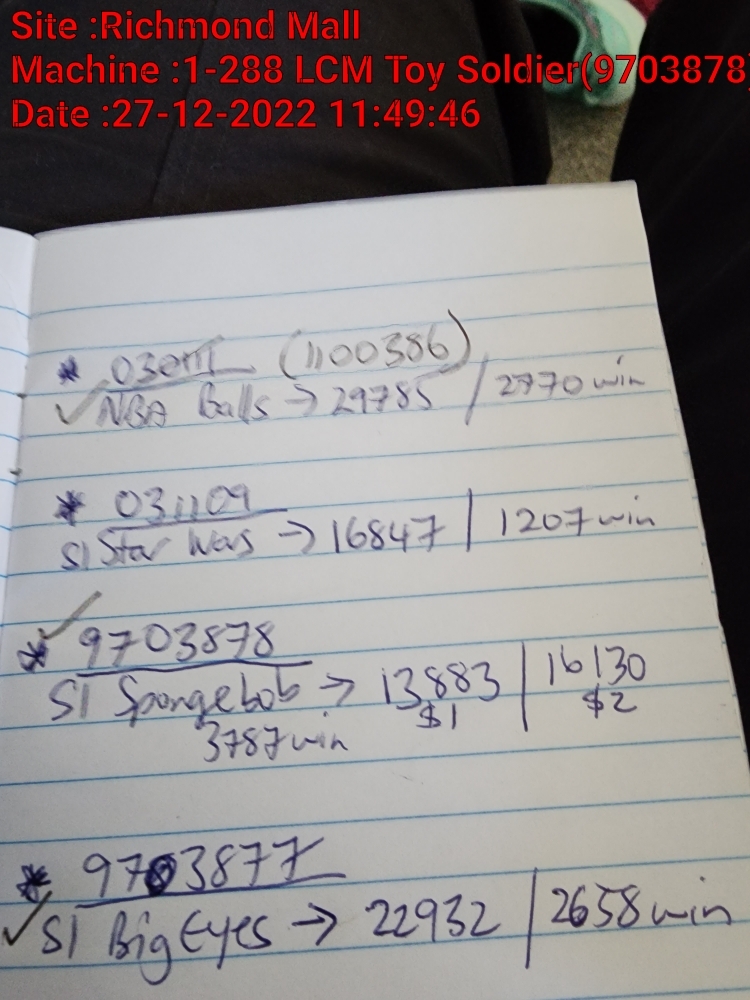 Site :Richmond Mall
Machine :1-288 LCM Toy Soldier(9703878)
Date :27-12-2022 11:49:46
* (1100386)
✓ NBA Balls → 29785 / 2770 win
* 031109
S1 Star Wars → 16847 | 1207 win
✓
* 9703878
S1 Spongebob → 13883 | 16130
$1 $2
3787 win
* 9703877
✓ S1 Big Eyes → 22932 | 2658 win